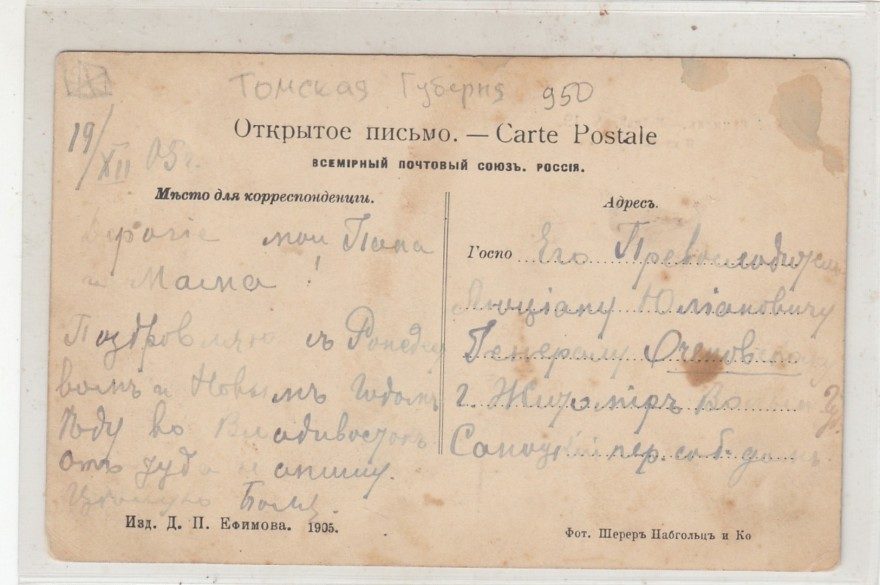 Томская Губерня 950
19/XII 05 г.
Открытое письмо. — Carte Postale
ВСЕМІРНЫЙ ПОЧТОВЫЙ СОЮЗЪ. РОССІЯ.
Мѣсто для корреспонденціи.
Дорогіе мои Папа
и Мама!
Поздровляю съ Рожед
вомъ и Новымъ Годомъ
Ѣду во Владивостокъ
отъ туда напишу.
Цѣлую Боля
Изд. Д. П. Ефимова. 1905.
Адресъ.
Госпо Его Превосходит
Люціану Юліановичу
Генералу
г. Житоміръ
пер. соб. домъ
Фот. Шереръ Набгольцъ и Ко